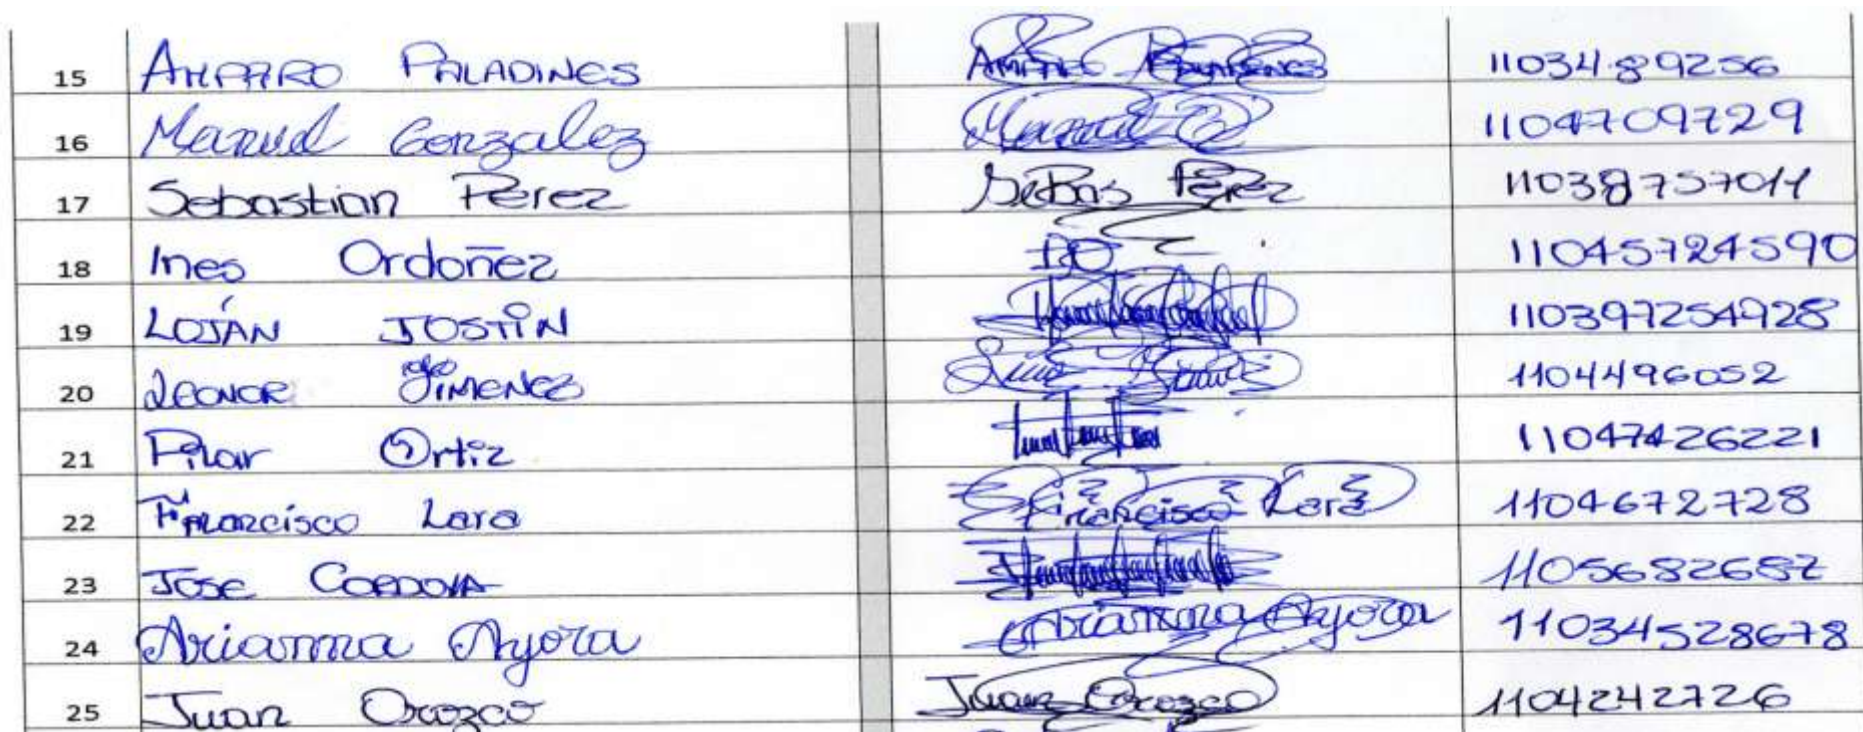 15 AMPARO PALADINES AMPARO PALADINES 1103489256
16 Manuel Gonzalez Manuel G 1104709729
17 Sebastian Perez Sebas Pérez
18 Ines Ordoñez IO 11045724590
19 LOJÁN JOSTIN 110397254928
20 LEONOR JIMENEZ 1104496052
21 Pilar Ortiz
22 Francisco Lara Francisco Lara 1104672728
23 JOSE CORDOVA 1105682682
24 Arianna Ayora Arianna Ayora 11034528678
25 Juan Orozco Juan Orozco 1104242726